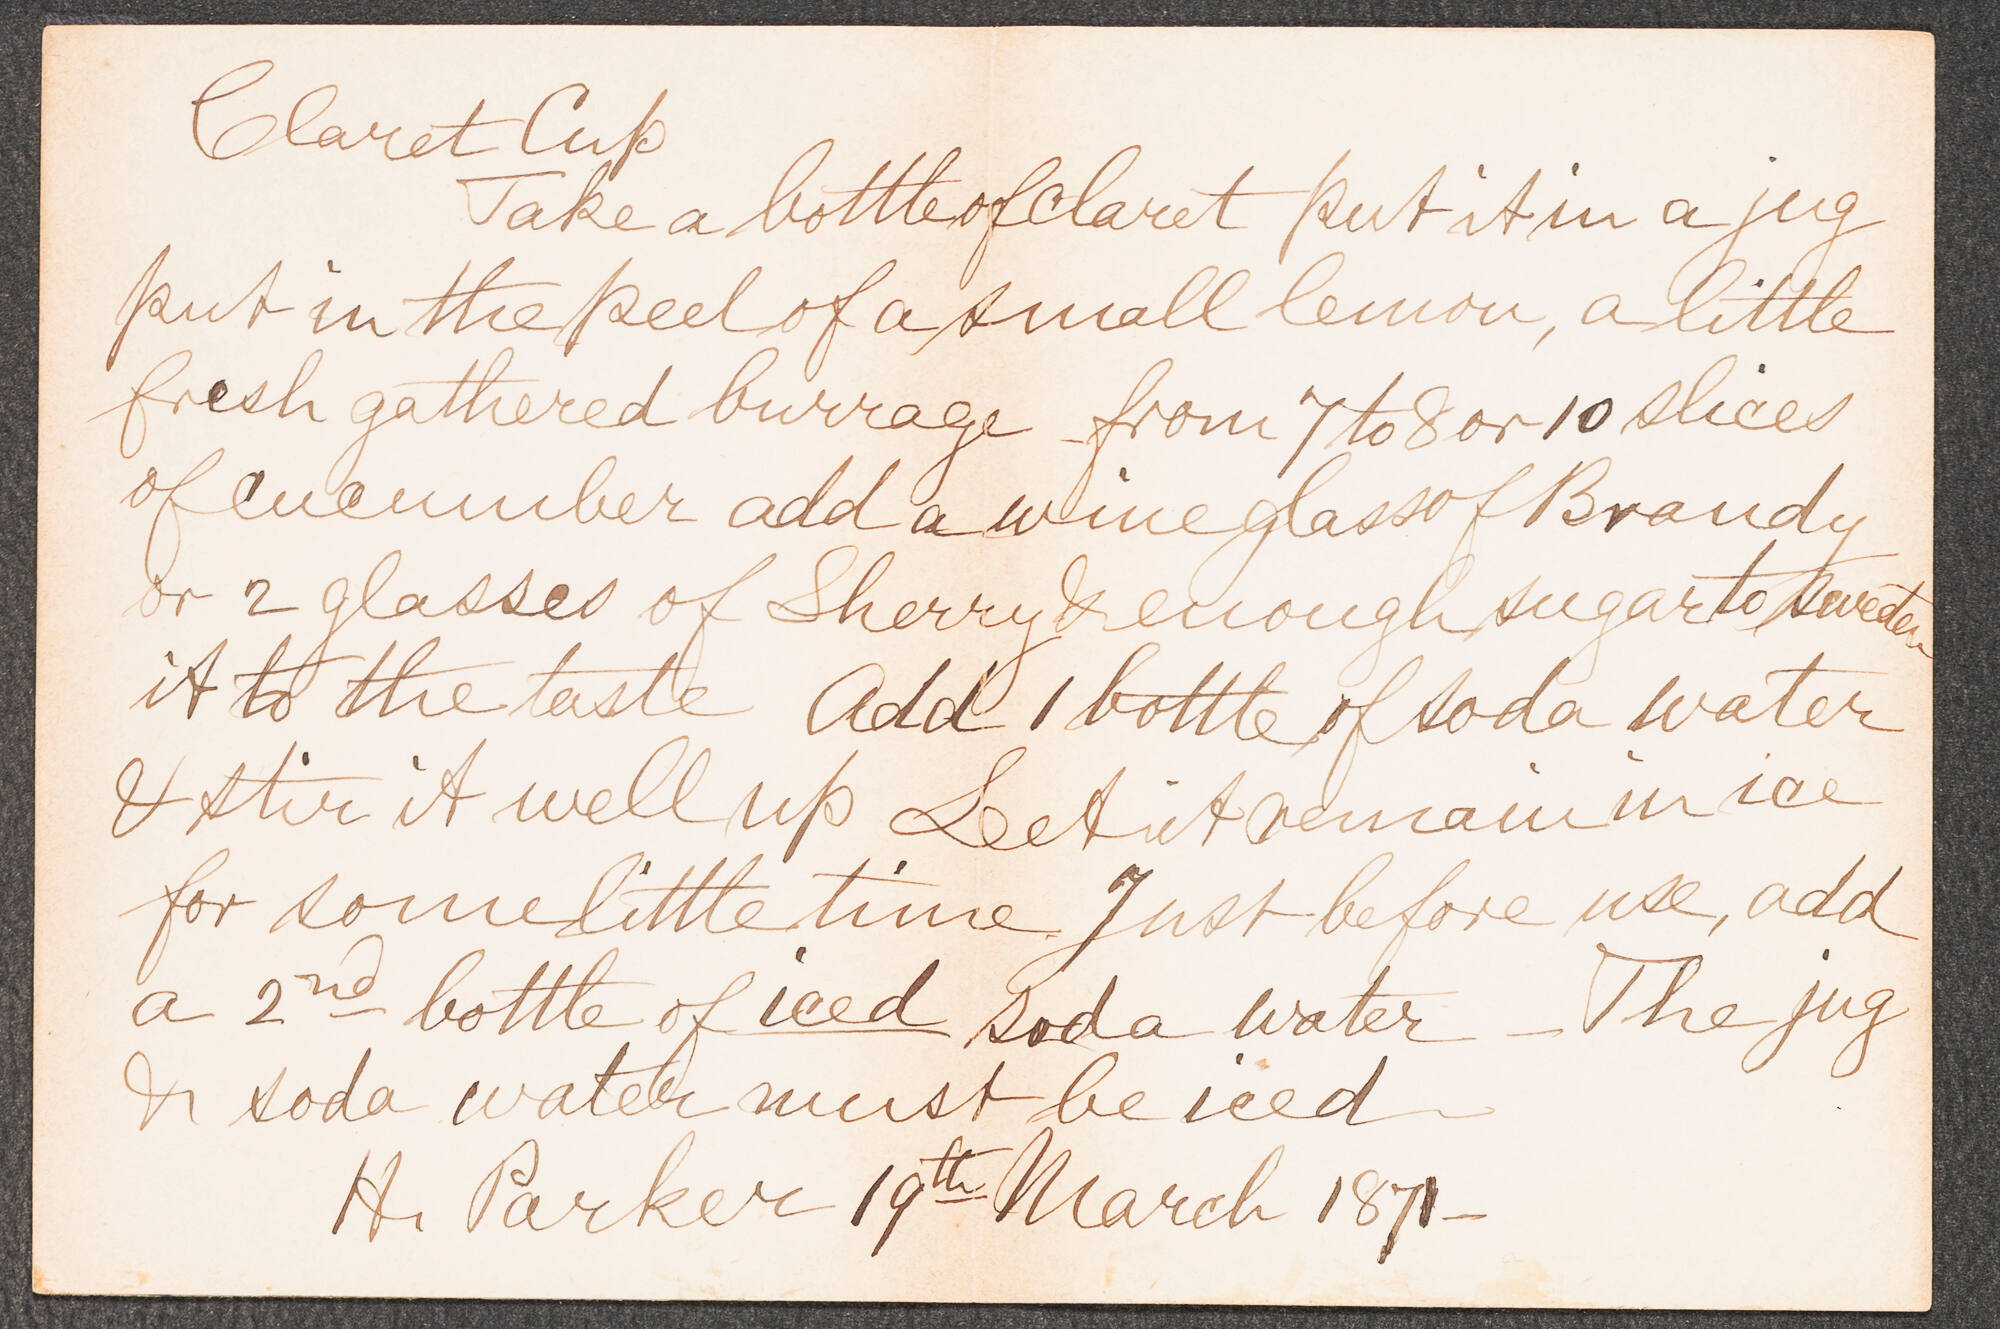 Claret Cup
Take a bottle of Claret put it in a jug
put in the peel of a small lemon, a little
fresh gathered burrage - from 7 to 8 or 10 slices
of cucumber add a wine glass of Brandy
or 2 glasses of Sherry & enough sugar to sweeten
it to the taste Add 1 bottle of soda water
& stir it well up Let it remain in ice
for some little time. Just before use, add
a 2nd bottle of iced soda water - The jug
& soda water must be iced
H. Parker 19th March 1871 -